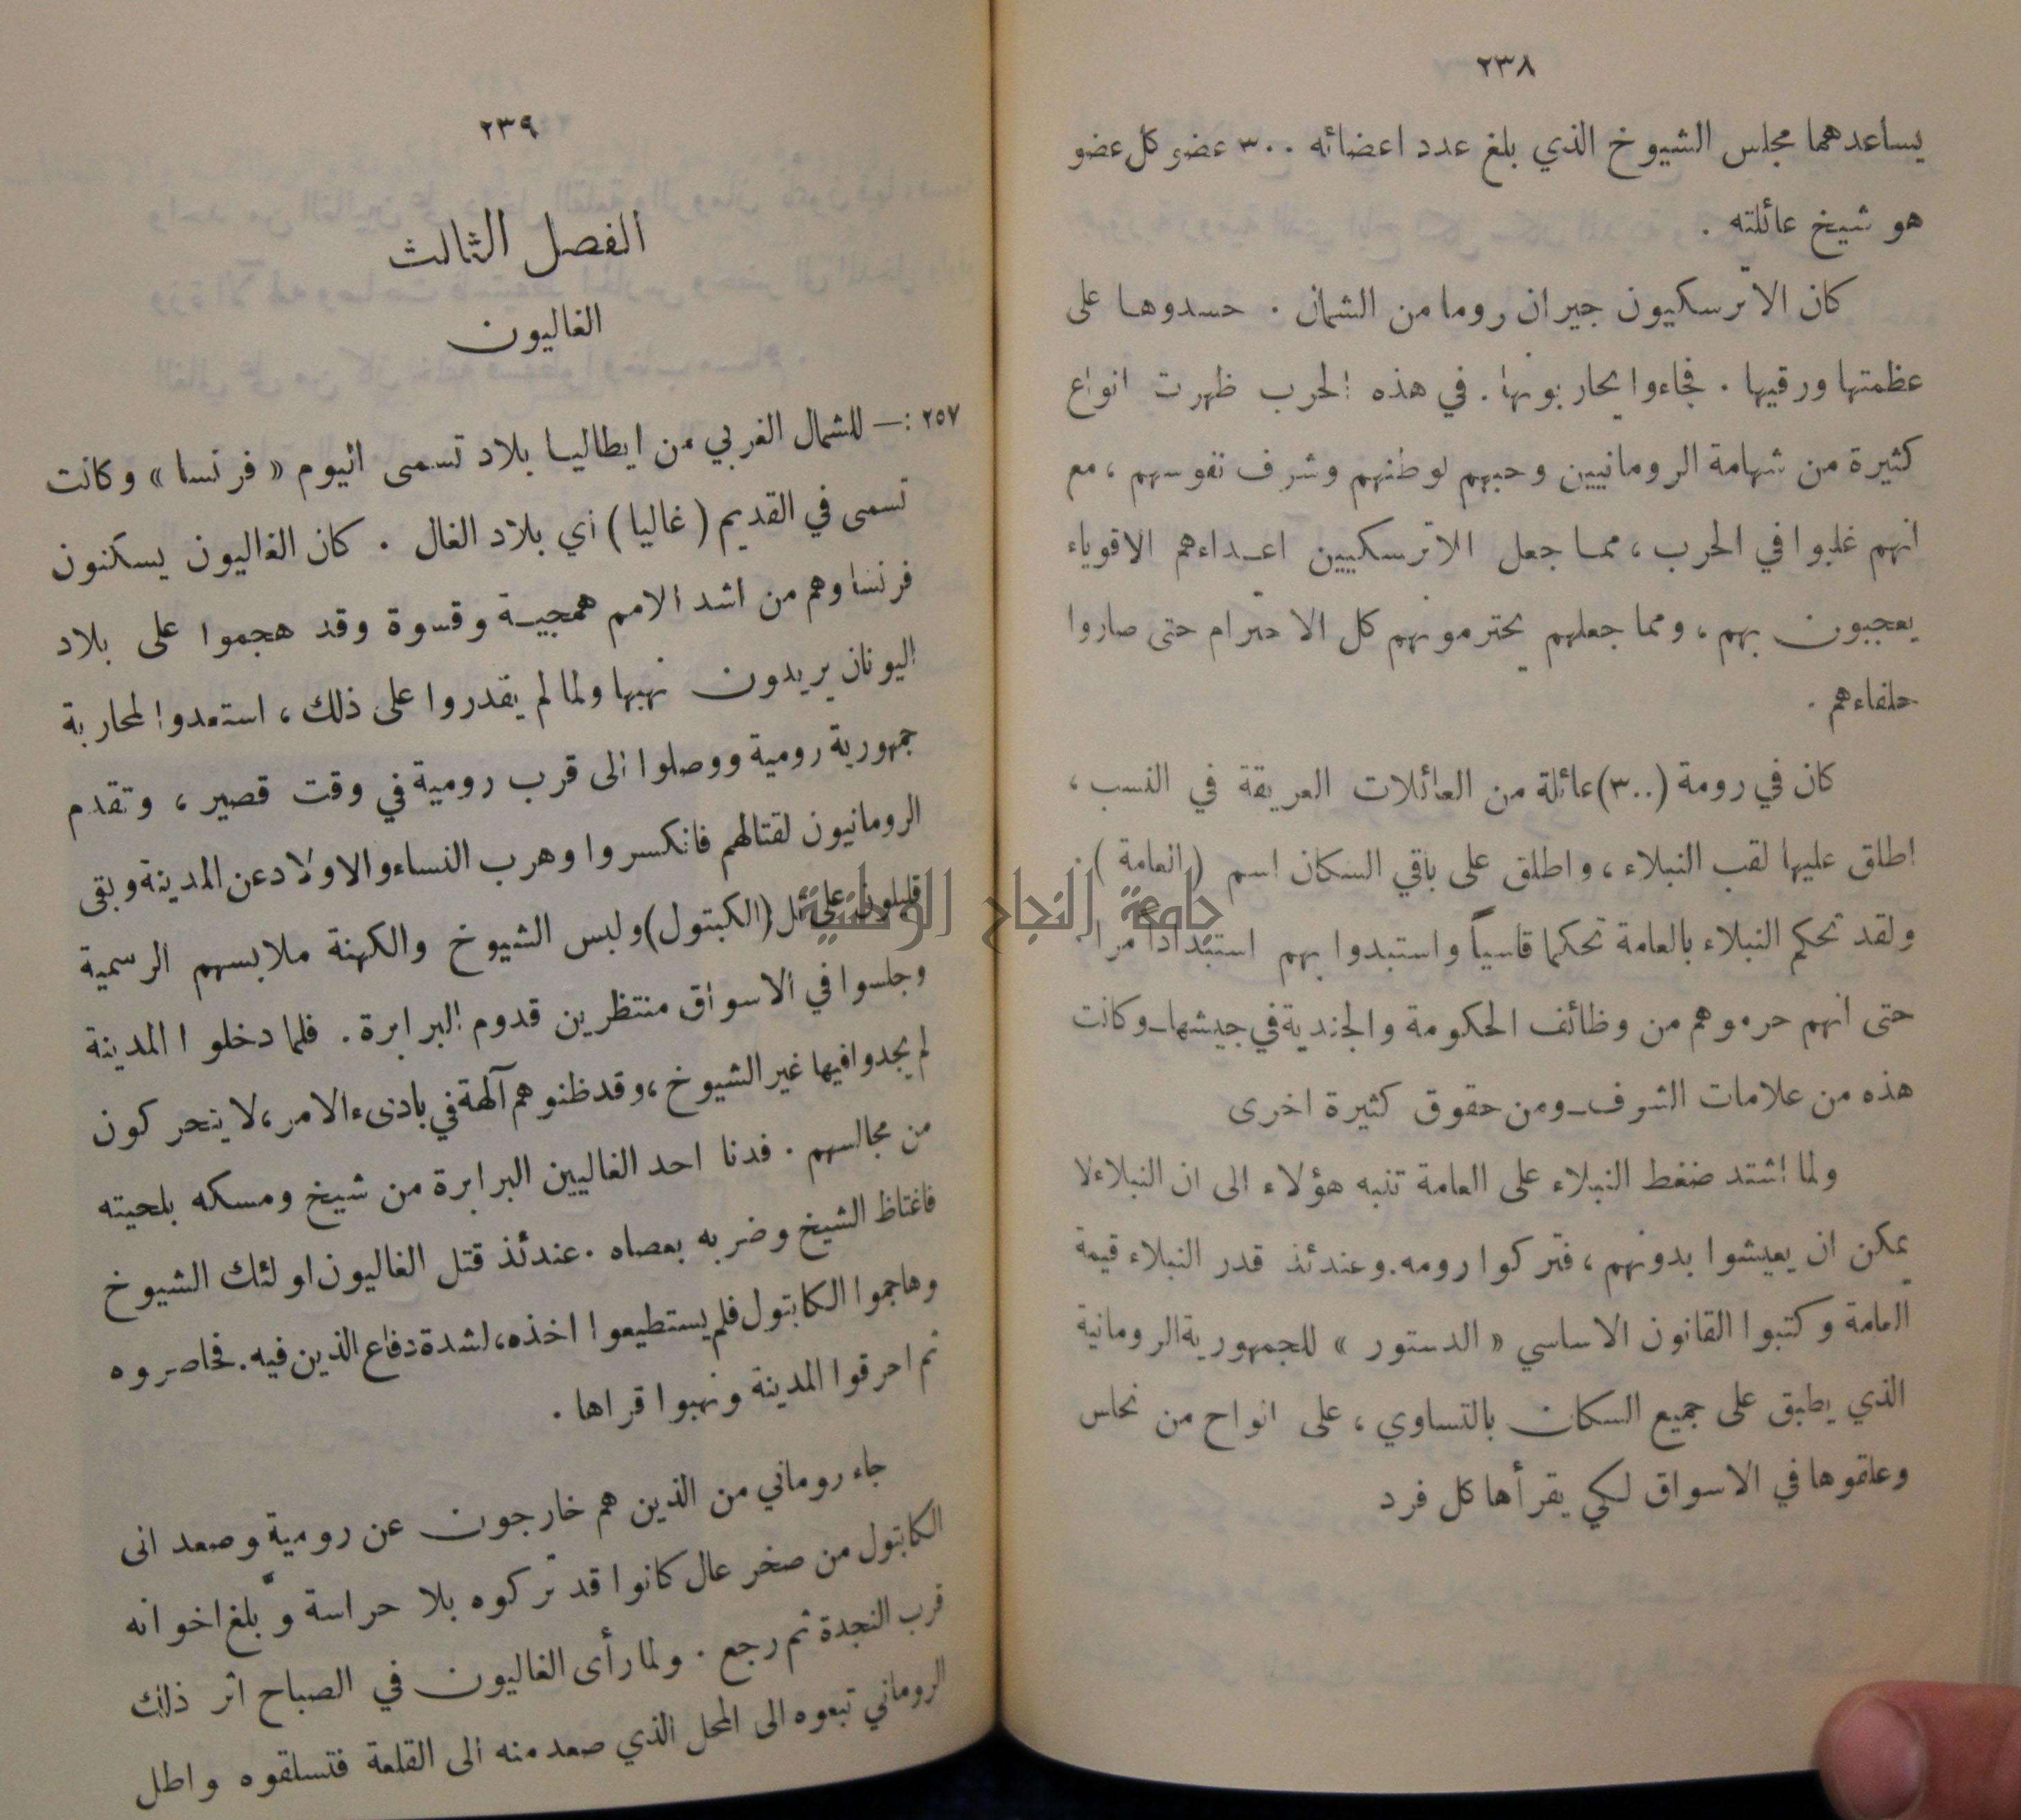 ٢٣٨
يساعدهما مجلس الشيوخ الذي بلغ عدد اعضائه ٣٠٠ عضو كل عضو
هو شيخ عائلته .
كان الاترسكيون جيران روما من الشمال . حسدوها على
عظمتها ورقيها . فجاءوا يحاربونها . في هذه الحرب ظهرت انواع
كثيرة من شهامة الرومانيين وحبهم لوطنهم وشرف نفوسهم ، مع
انهم غلبوا في الحرب ، مما جعل الاترسكيين اعداءهم الاقوياء
يعجبون بهم ، ومما جعلهم يحترمونهم كل الاحترام حتى صاروا
حلفاءهم .
كان في رومة (٣٠٠) عائلة من العائلات العريقة في النسب ،
اطلق عليها لقب النبلاء ، واطلق على باقي السكان اسم ( العامة ) .
ولقد تحكم النبلاء بالعامة تحكما قاسياً واستبدوا بهم استبداداً مراً
حتى انهم حرموهم من وظائف الحكومة والجندية في جيشها ـ وكانت
هذه من علامات الشرف ـ ومن حقوق كثيرة اخرى
ولما اشتد ضغط النبلاء على العامة تنبه هؤلاء الى ان النبلاء لا
يمكن ان يعيشوا بدونهم ، فتركوا رومه . وعندئذ قدر النبلاء قيمة
العامة وكتبوا القانون الاساسي « الدستور » للجمهورية الرومانية
الذي يطبق على جميع السكان بالتساوي ، على انواح من نحاس
وعلقوها في الاسواق لكي يقرأها كل فرد
٢٣٩
الفصل الثالث
الغاليون
٢٥٧ :— للشمال الغربي من ايطاليا بلاد تسمى اليوم « فرنسا » وكانت
تسمى في القديم ( غاليا ) أي بلاد الغال . كان الغاليون يسكنون
فرنسا وهم من اشد الامم همجية وقسوة وقد هجموا على بلاد
اليونان يريدون نهبها ولما لم يقدروا على ذلك ، استعدوا لمحاربة
جمهورية رومية ووصلوا الى قرب رومية في وقت قصير ، وتقدم
الرومانيون لقتالهم فانكسروا وهرب النساء والاولاد عن المدينة وبقى
قليلون على تل (الكبتول) ولبس الشيوخ والكهنة ملابسهم الرسمية
وجلسوا في الاسواق منتظرين قدوم البرابرة . فلما دخلوا المدينة
لم يجدوا فيها غير الشيوخ ، وقد ظنوهم آلهة في بادىء الامر ، لا يتحركون
من مجالسهم . فدنا احد الغاليين البرابرة من شيخ ومسكه بلحيته
فاغتاظ الشيخ وضربه بعصاه . عندئذ قتل الغاليون اولئك الشيوخ
وهاجموا الكابتول فلم يستطيعوا اخذه ، لشدة دفاع الذين فيه . فحاصروه
ثم احرقوا المدينة ونهبوا قراها .
جاء روماني من الذين هم خارجون عن رومية وصعد الى
الكابتول من صخر عال كانوا قد تركوه بلا حراسة وبلّغ اخوانه
قرب النجدة ثم رجع . ولما رأى الغاليون في الصباح اثر ذلك
الروماني تبعوه الى المحل الذي صعد منه الى القلعة فتسلقوه واطل
جامعة النجاح الوطنية